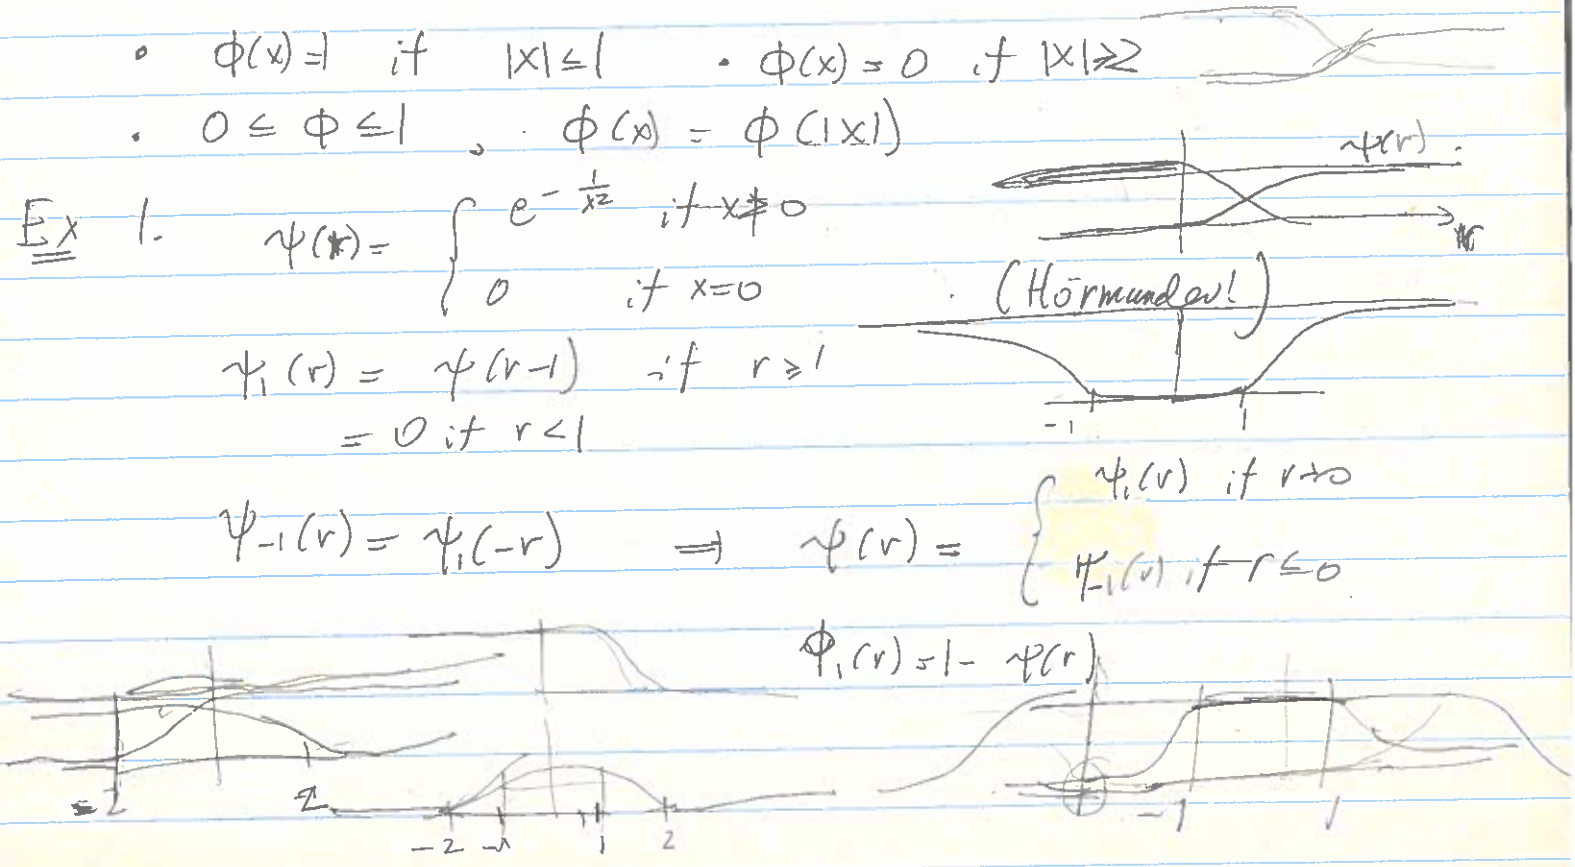 • φ(x)=1 if |x|≤1 • φ(x)=0 if |x|≥2
• 0≤φ≤1, • φ(x)=φ(|x|)
Ex 1. ψ( )= { e^{-1/x²} if x 0
0 if x=0
ψ(r).
r
(Hörmander!)
ψ₁(r) = ψ(r-1) if r≥1
= 0 if r<1
-1 1
ψ₋₁(r) = ψ₁(-r) ⇒ ψ(r) = { ψ₁(r) if r 0
ψ₋₁(r) if r≤0
φ₁(r)=1-ψ(r)
2
-2 -1 1 2
-1 1